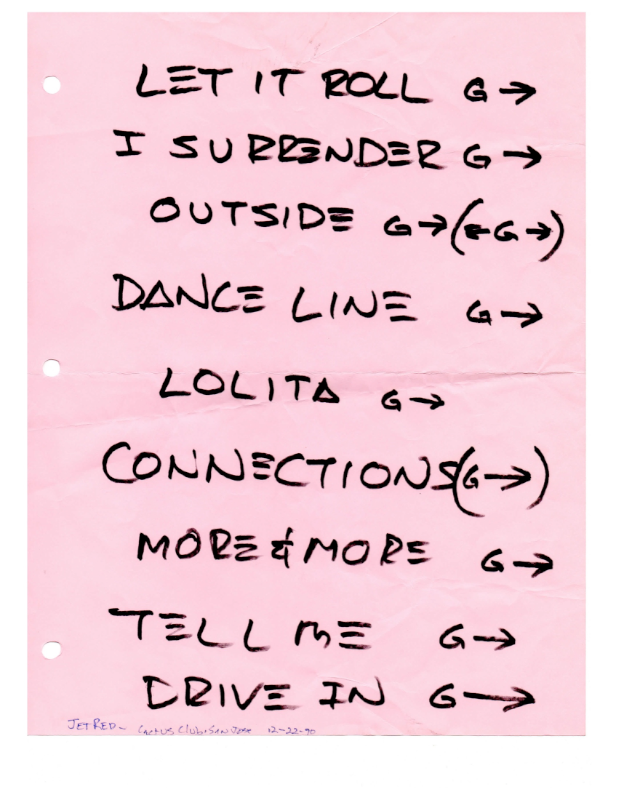 LET IT ROLL G →
I SURRENDER G →
OUTSIDE G → (← G →)
DANCE LINE G →
LOLITA G →
CONNECTIONS (G →)
MORE & MORE G →
TELL ME G →
DRIVE IN G →
JET RED - CACTUS Club · SAN JOSE 12-22-90